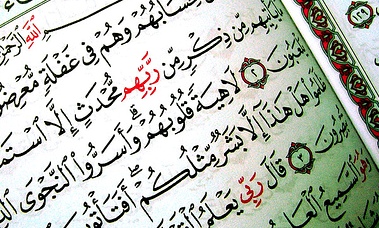 ٱللَّهِ ٱلرَّحْمَٰ
حِسَابُهُمْ وَهُمْ فِى غَفْلَةٍ مُّعْرِضُ
يَأْتِيهِم مِّن ذِكْرٍ مِّن رَّبِّهِم مُّحْدَثٍ إِلَّا ٱسْتَمَ
يَلْعَبُونَ ٢ لَاهِيَةً قُلُوبُهُمْ وَأَسَرُّوا۟ ٱلنَّجْوَى ٱلَّ
هَلْ هَٰذَآ إِلَّا بَشَرٌ مِّثْلُكُمْ أَفَتَأْتُو
تُبْصِرُونَ ٣ قَالَ رَبِّى يَعْلَمُ ٱلْقَ
وَهُوَ ٱلسَّمِيعُ ٱلْعَ